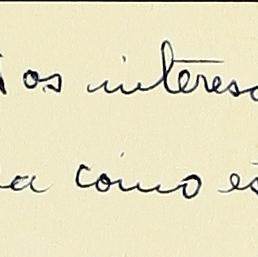 os interesa
a como es